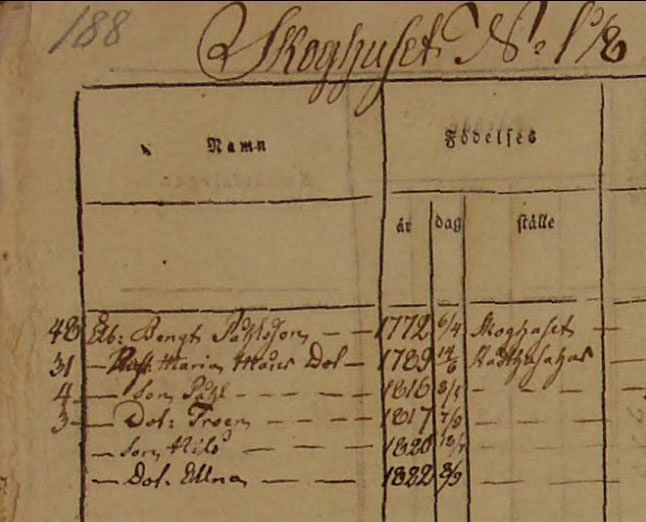 188
Skoghuset N: 1/8
Namn Födelses
år dag ställe
48 Åb: Bengt Påhlsson 1772 6/4 Skoghuset
31 Maria Måns Dot 1789 14/6
4 Son Påhl 1816 8/
3 Dot: Troen 1817 7/9
Son Nils 1820 18/
Dot. Ellna 1822 8/9